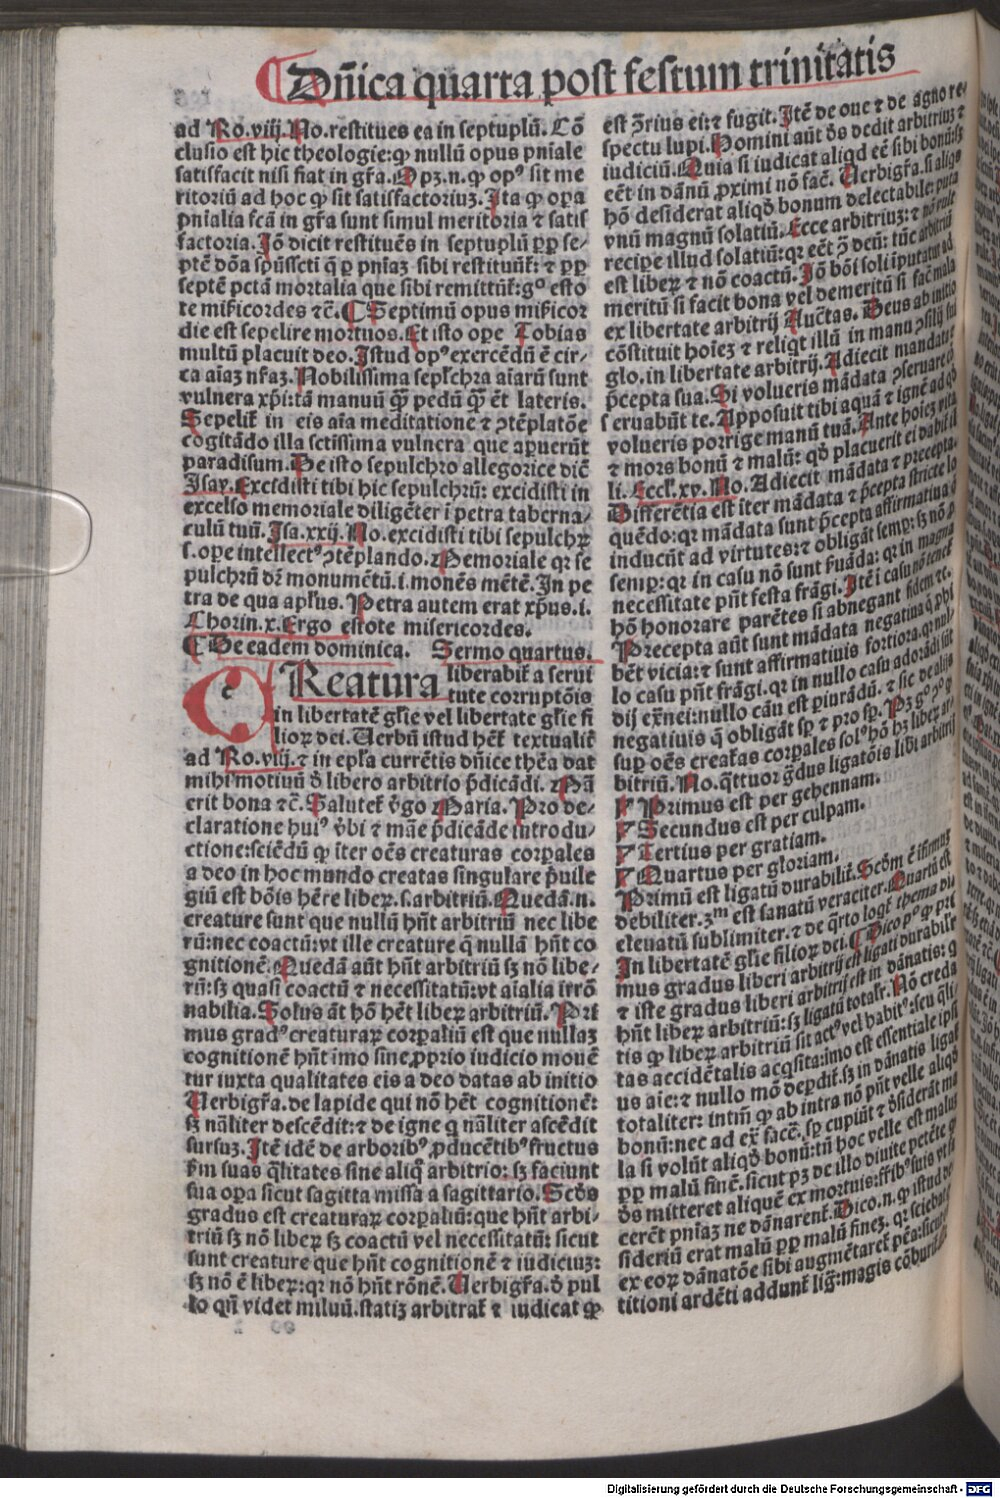 Dn̄ica quarta post festum trinitatis
ad Ro.viij. No.restitues ea in septuplū. Cō
clusio est hic theologie:ꝙ nullū opus pn̄iale
satisfacit nisi fiat in gr̄a. Opꝫ.n.ꝙ opꝰ sit me
ritoriū ad hoc ꝙ sit satisfactoriuꝫ. Ita ꝙ oꝑa
pn̄ialia sc̄a in gr̄a sunt simul meritoria ⁊ satis
factoria. Iō dicit restituēs in septuplū ꝓp se/
ptē dōa sp̄ūssc̄ti q̄ ꝑ pn̄iaꝫ sibi restituūt̄: ⁊ ꝓp
septē pctā mortalia que sibi remittūt̄:gͦ esto
te mīcordes ⁊c̄. ¶ Septimū opus mīcor
die est sepelire mortuos. Et isto oꝑe Tobias
multū placuit deo. Istud opꝰ exercēdū ē cir/
ca aīaꝫ nr̄aꝫ. Nobilissima sepl̄chra aīarū sunt
vulnera xp̄i:tā manuū qꝫ̄ pedū qꝫ̄ ēt lateris.
Sepelit̄ in eis aīa meditatione ⁊ ꝯtēplatōe
cogitādo illa sctissima vulnera que aꝑuerūt
paradisum. De isto sepulchro allegorice dic̄
Isay. Excidisti tibi hic sepulchrū: excidisti in
excelso memoriale diligēter i petra taberna/
culū tuū. Isa.xxij. No.excidisti tibi sepulchꝝ
s.oꝑe intellectꝰ ꝯtēplando. Memoriale qꝛ se
pulchrū dr̄ monumētū.i.monēs mētē. In pe
tra de qua apl̄us. Petra autem erat xp̄us.i.
Chorin.x. Ergo estote misericordes.
¶ De eadem dominica. Sermo quartus.
CReatura liberabit̄ a serui
tute corruptōis
in libertatē gl̄ie vel libertate gl̄ie fi
lioꝝ dei. Uerbū istud hēt̄ textualit̄
ad Ro.viij.⁊ in epl̄a currētis dn̄ice thēa dat
mihi motiuū ḋ libero arbitrio p̄dicādi. Mā
erit bona ⁊c̄. Salutet̄ v̄go Maria. Pro de/
claratione huiꝰ v̄bi ⁊ māe p̄dicāde introdu/
ctione:sciēdū ꝙ iter oēs creaturas corꝑales
a deo in hoc mundo creatas singulare p̄uile
giū est hōis hēre libeꝝ.s.arbitriū. Quedā.n.
creature sunt que nullū hn̄t arbitriū nec libe
rū:nec coactū:vt ille creature q̄ nullā hn̄t co
gnitionē. Quedā aūt hn̄t arbitriū sꝫ nō libe/
rū:sꝫ quasi coactū ⁊ necessitatū:vt aīalia irrō
nabilia. Solus āt hō hēt libeꝝ arbitriū. Pri
mus gradꝰ creaturaꝝ corꝑaliū est que nullaꝫ
cognitionē hn̄t īmo sine ꝓprio iudicio mouē
tur iuxta qualitates eis a deo datas ab initio
Uerbigr̄a.de lapide qui nō hēt cognitionē:
sꝫ nāliter descēdit:⁊ de igne q̄ nāliter ascēdit
sursuꝫ. Itē idē de arboribꝰ ꝓducētibꝰ fructus
ẜm suas q̄litates sine aliq̄ arbitrio: sꝫ faciunt
sua oꝑa sicut sagitta missa a sagittario. Scḋs
gradus est creaturaꝝ corꝑaliū:que hn̄t arbi/
triū sꝫ nō libeꝝ sꝫ coactū vel necessitatū: sicut
sunt creature que hn̄t cognitionē ⁊ iudiciuꝫ:
sꝫ nō ē libeꝝ:qꝛ nō hn̄t rōnē. Uerbigr̄a.ḋ pul
lo qn̄ videt miluū.statiꝫ arbitrat̄ ⁊ iudicat ꝙ
est ꝯ̄rius ei:⁊ fugit. Itē de oue ⁊ de agno re/
spectu lupi. Homini aūt ds̄ dedit arbitriuꝫ ⁊
iudiciū. Quia si iudicat aliqd eē sibi bonū:sꝫ
eēt in dānū ꝓximi nō fac̄. Uerbigr̄a.si aliqs
hō desiderat aliqḋ bonum delectabile: puta
vnū magnū solatiū. Ecce arbitriuꝫ: ⁊ nō vult
reciꝑe illud solatiū:qꝛ eēt ꝯ̄ deū: tūc arbitriū
est libeꝝ ⁊ nō coactū. Iō hōi soli iputatur ad
meritū si facit bona vel demeritū si fac̄ mala
ex libertate arbitrij Auc̄tas. Deus ab initio
cōstituit hoīeꝫ ⁊ reliqt illū in manu ꝯsilij sui
glo.in libertate arbitrij. Adiecit mandata ⁊
p̄cepta sua. Si volueris mādata ꝯseruare cō
seruabūt te. Apposuit tibi aquā ⁊ ignē ad qḋ
volueris porrige manū tuā. Ante hoieꝫ vita
⁊ mors bonū ⁊ malū: qḋ placuerit ei dabit̄ il
li. Eccl̄.xv. No. Adiecit mādata ⁊ precepta.
Differētia est iter mādata ⁊ p̄cepta stricte lo
quēdo:qꝛ mādata sunt p̄cepta affirmatiua q̄
inducūt ad virtutes:⁊ obligāt semꝑ: sꝫ nō ꝓ
semꝑ:qꝛ in casu nō sunt ẜuāda: qꝛ in magna
necessitate pn̄t festa frāgi. Itē i casu nō tenet̄
hō honorare parētes si abnegant fidem ⁊c.
Precepta aūt sunt mādata negatiua q̄ ꝓhi
bēt vicia:⁊ sunt affirmatiuis fortiora.qꝛ nul
lo casu pn̄t frāgi.qꝛ in nullo casu adorādi sūt
dij exn̄ei:nullo cāu est ꝑiurādū. ⁊ sic de alijs
negatiuis q̄ obligāt sꝑ ⁊ pro sꝑ. Pꝫ gͦ ꝙ
suꝑ oēs creatas corꝑales solꝰ hō hꝫ libeꝝ ar
bitriū. No.q̄ttuor g̈dus ligatōis libi arbitrij
Primus est per gehennam.
Secundus est per culpam.
Tertius per gratiam.
Quartus per gloriam.
Primū est ligatū durabilit̄. Scḋm ē ifirmuꝫ
debiliter.3ᵐ est sanatū veraciter. Quartū est
eleuatū sublimiter. ⁊ de q̄rto logt̄ thema dū
In libertatē gl̄ie filioꝝ dei. ¶ Dico pͦ ꝙ pri
mus gradus liberi arbitrij est ligati durabilit̄
⁊ iste gradus liberi arbitrij est in dānatis: q
hn̄t libeꝝ arbitriū:sꝫ ligatū totalr̄. Nō creda
tis ꝙ libeꝝ arbitriū sit actꝰ vel habitꝰ:seu q̄li
tas accidētalis acqsita:imo est essentiale ipsi
us aīe:⁊ nullo mō deꝑdit̄.sꝫ in dānatis ligat̄
totaliter: intm̄ ꝙ ab intra nō pn̄t velle aliqḋ
bonū:nec ad ex̄ facē. sꝑ cupiūt ⁊ ḋsiderāt ma
la si volūt aliqḋ bonū:tn̄ hoc velle est malus
ꝓp malū finē.sicut pꝫ de illo diuite petēte ꝙ
ds̄ mitteret aliquē ex mortuis:fr̄ibꝰ suis vt fa
cerēt pn̄iaꝫ ne dānarent̄. Dico.n.ꝙ istud de
siderium erat malū ꝓp malū fineꝫ. qꝛ sciebat
ex eoꝝ dānatōe sibi augmētaret̄ pēa:sicut
titioni ardēti addunt̄ lig:magis cōburūt̄